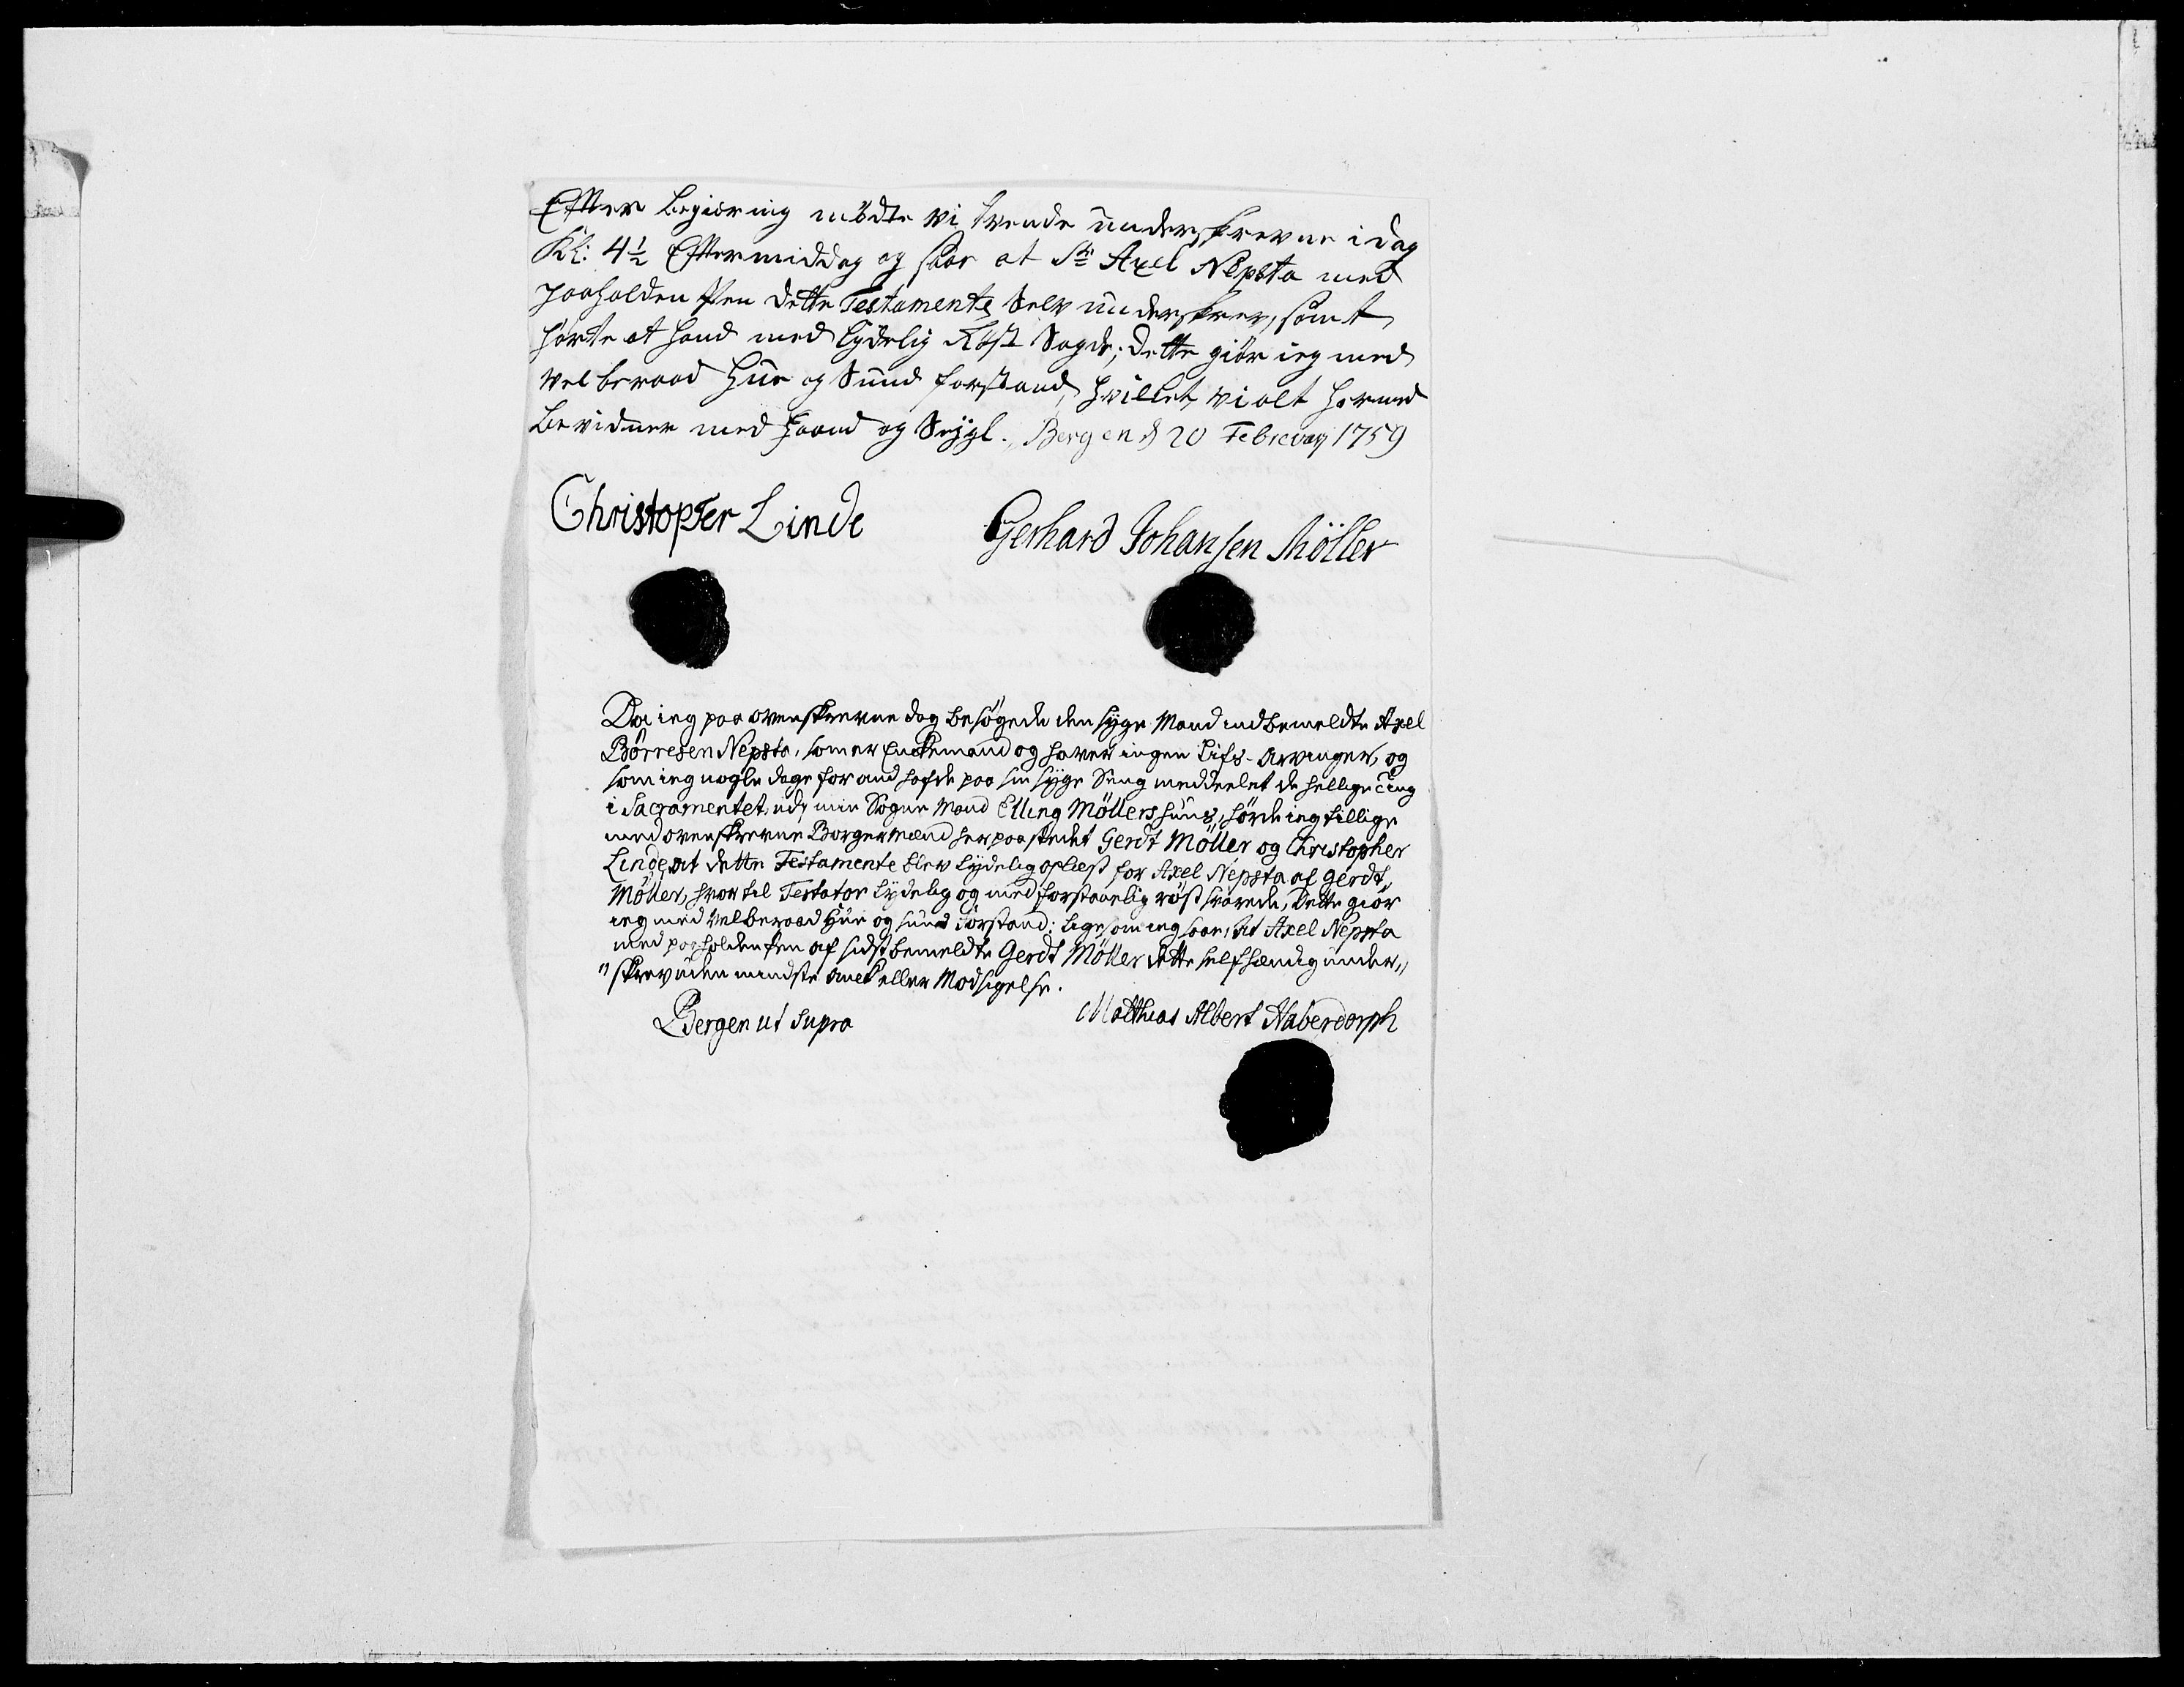 Efter begiæring mödte vi tvende underskrevne i dag
Kl: 4½ Eftermiddag og saae at Sr Axel Nepsta med
paaholden Pen dette Testamente Selv underskrev, samt
hørte at hand med lydelig Röst Sagde; dette giör ieg med
velberaad Hue og Sund forstand, hvilket vi alt hermed
bevidner med Haand og Seigl. Bergen d 20 Februarij 1759
Christopfer Linde
Gerhard Johansen Möller
Da ieg paa ovenskrevne dag besøgede den syge Mand indbemeldte Axel
Börresen Nepsta, som er Enkemand og haver ingen Lifs-Arvinger, og
som ieg nogle dage forud hafde paa sin syge Seng meddeelet de hellige Ting
i Sacramentet, udj min Sogne Mand Elling Möllers huus, hörde ieg tillige
med ovenskrevne Borgermænd her paa stedet Gerdt Möller og Christopher
Linde, at dette Testamente blev lydelig oplæst for Axel Nepsta af Gerdt
Möller, hvortil Testator lydelig og med forstaaelig röst svarede, Dette giör
ieg med velberaad Hue og sund Forstand; ligesom ieg saae, at Axel Nepsta
med paaholden Pen af sidstbemeldte Gerdt Möller dette selfhændig under„
„skrev uden mindste eller Modsigelse.
Bergen ut supra
Matthias Albert Haberdorph